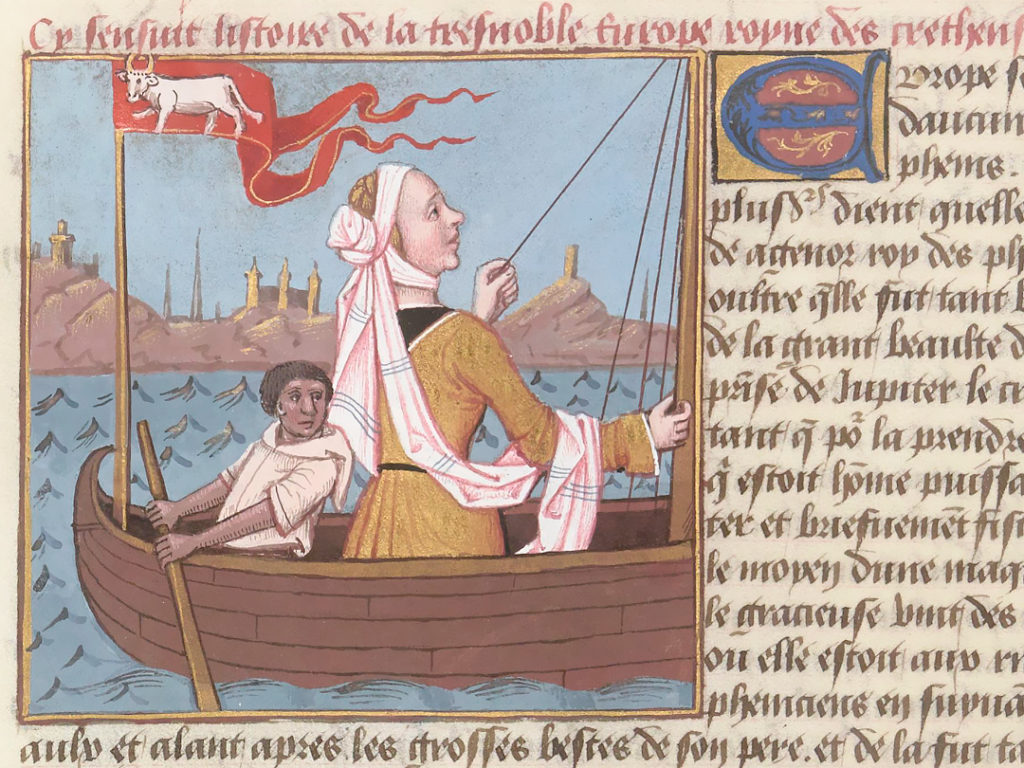 Cy sensuit listoire de la tresnoble Europe royne des crethens
Europe
daucun
phenis.
plusrs dient quelle
de agenor roy des ph
oultre qlle fut tant b
de la grant beaulte d
prise de Jupiter le cr
tant q po la prendre
q estoit home puissa
ter et briefuement fist
le moyen dune maq
le gracieuse vint des
ou elle estoit aux ri
pheniciens en suyua
aulx et alant apres les grosses bestes de son pere. et de la fut ta